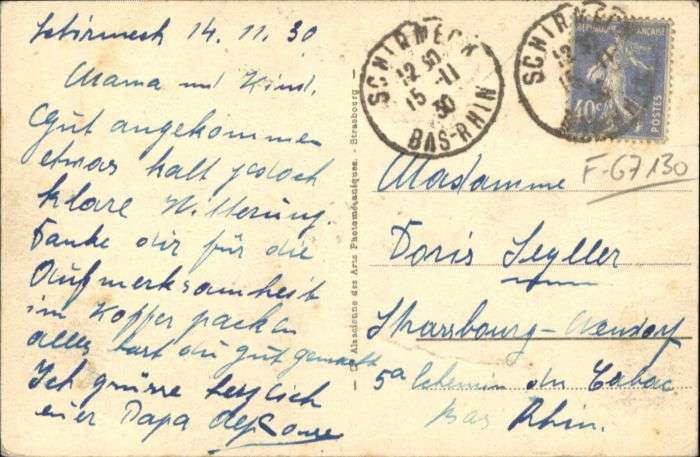 Schirmeck 14.11.30
Mama und Kind.
Gut angekommen
etwas kalt jedoch
klare Witterung.
Danke dir für die
Aufmerksamheit
im Koffer packen
alles hast du gut gemacht
Ich grüsse herzlich
euer Papa
Alsacienne des Arts Photomécaniques. - Strasbourg
SCHIRMECK
12 30
15 -11
30
BAS-RHIN
SCHIRMECK
12
15
REPUBLIQUE FRANÇAISE
40c
POSTES
F-67130
Madamme
Doris Seyller
Strasbourg-Neudorf
5a Chemin du Cabac
Bas Rhin.